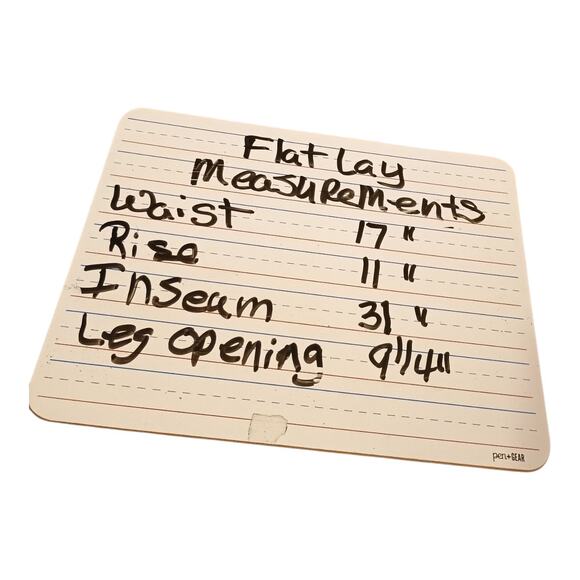 Flat Lay
Measurements
Waist 17"
Rise 11"
Inseam 31"
Leg Opening 9 1/4"
pen+GEAR